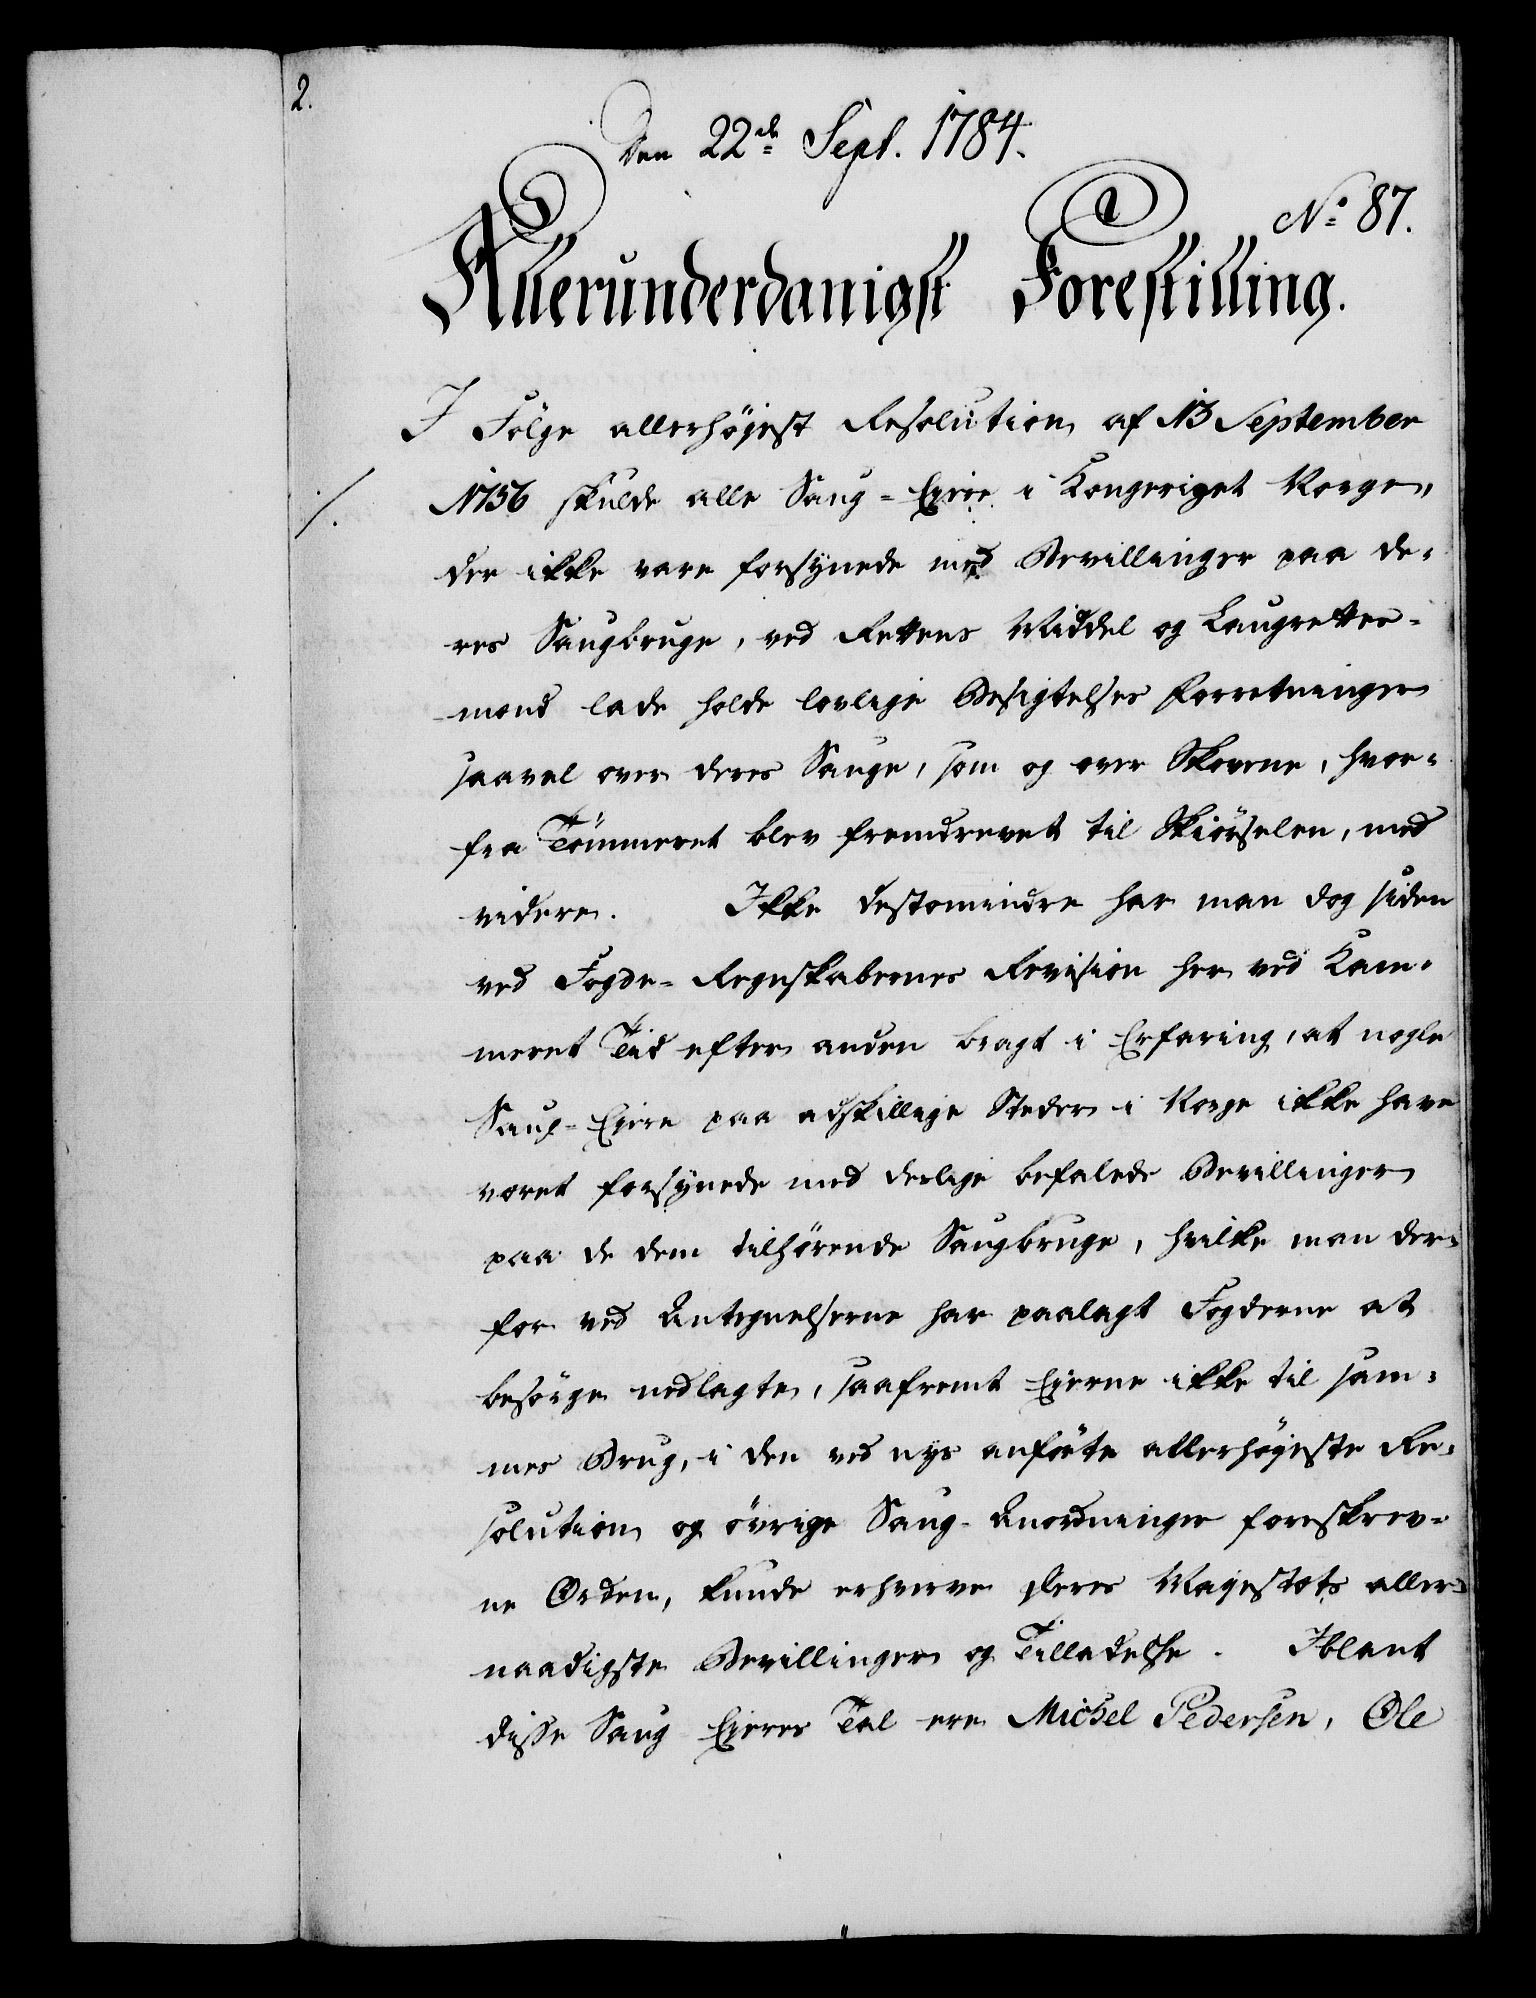 2.
Den 22de Sept. 1784.
No 87.
Allerunderdanigst Forestilling.
I Følge allerhøjest Resolution af 13 September
1756 skulde alle Saug-Ejere i Kongeriget Norge,
der ikke vare forsynede med Bevillinger paa de-
res Saugbruge, ved Rettens Middel og Laugrettes-
mænd lade holde lovlige Besigtelses Forretninger
saavel over deres Sauge, som og over Skovene, hvor-
fra Tømmeret blev fremdrevet til Skiørselen, med
videre. Ikke destomindre har man dog siden
ved Fogde-Regnskabernes Revision her ved Kam-
meret Tid efter anden bragt i Erfaring, at nogle
Saug-Ejere paa adskillige Steder i Norge ikke have
været forsynede med deslige befalede Bevillinger
paa de dem tilhørende Saugbruge, hvilke man der-
for ved Antegnelserne har paalagt Fogderne at
besørge nedlagte, saafremt Ejerne ikke til sam-
mes Brug, i den ved nys anførte allerhøjeste Re-
solution og øvrige Saug-Anordninger foreskrev-
ne Orden, kunde erhverve Deres Majestæts aller-
naadigste Bevillinger og Tilladelse. Iblant
disse Saug Ejeres Tal ere Michel Pedersen, Ole